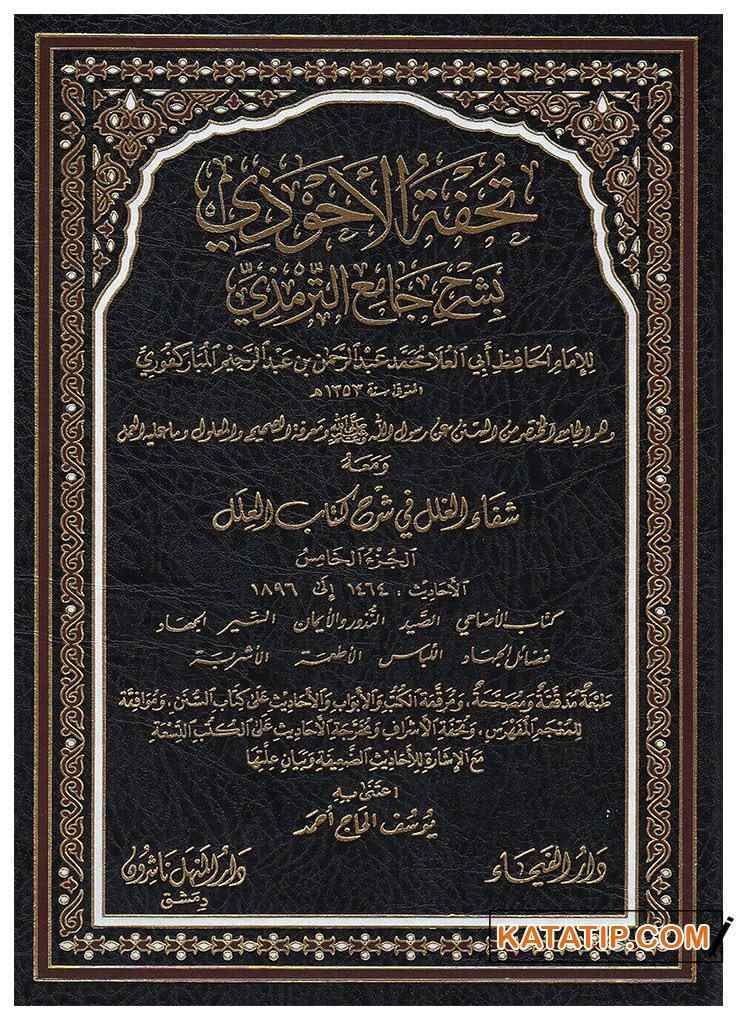 تحفة الأحوذي
بشرح جامع الترمذي
للإمام الحافظ أبي العلا محمد عبد الرحمن بن عبد الرحيم المباركفوري
المتوفى سنة ١٣٥٣هـ
وهو الجامع المختصر من السنن عن رسول الله ﷺ ومعرفة الصحيح والمعلول وما عليه العمل
ومعه
شفاء الغلل في شرح كتاب العلل
الجزء الخامس
الأحاديث : ١٤٦٤ إلى ١٨٩٦
كتاب الأضاحي الصيد النذور والأيمان السير الجهاد
فضائل الجهاد اللباس الأطعمة الأشربة
طبعة مدققة ومصححة، ومرقمة الكتب والأبواب والأحاديث على كتاب السنن، وموافقة
للمعجم المفهرس، وتحفة الأشراف ومخرجة الأحاديث على الكتب التسعة
مع الإشارة للأحاديث الضعيفة وبيان علتها
اعتنى به
يوسف الحاج أحمد
دار الفيحاء
دار المنهل ناشرون
دمشق
KATATIP.COM